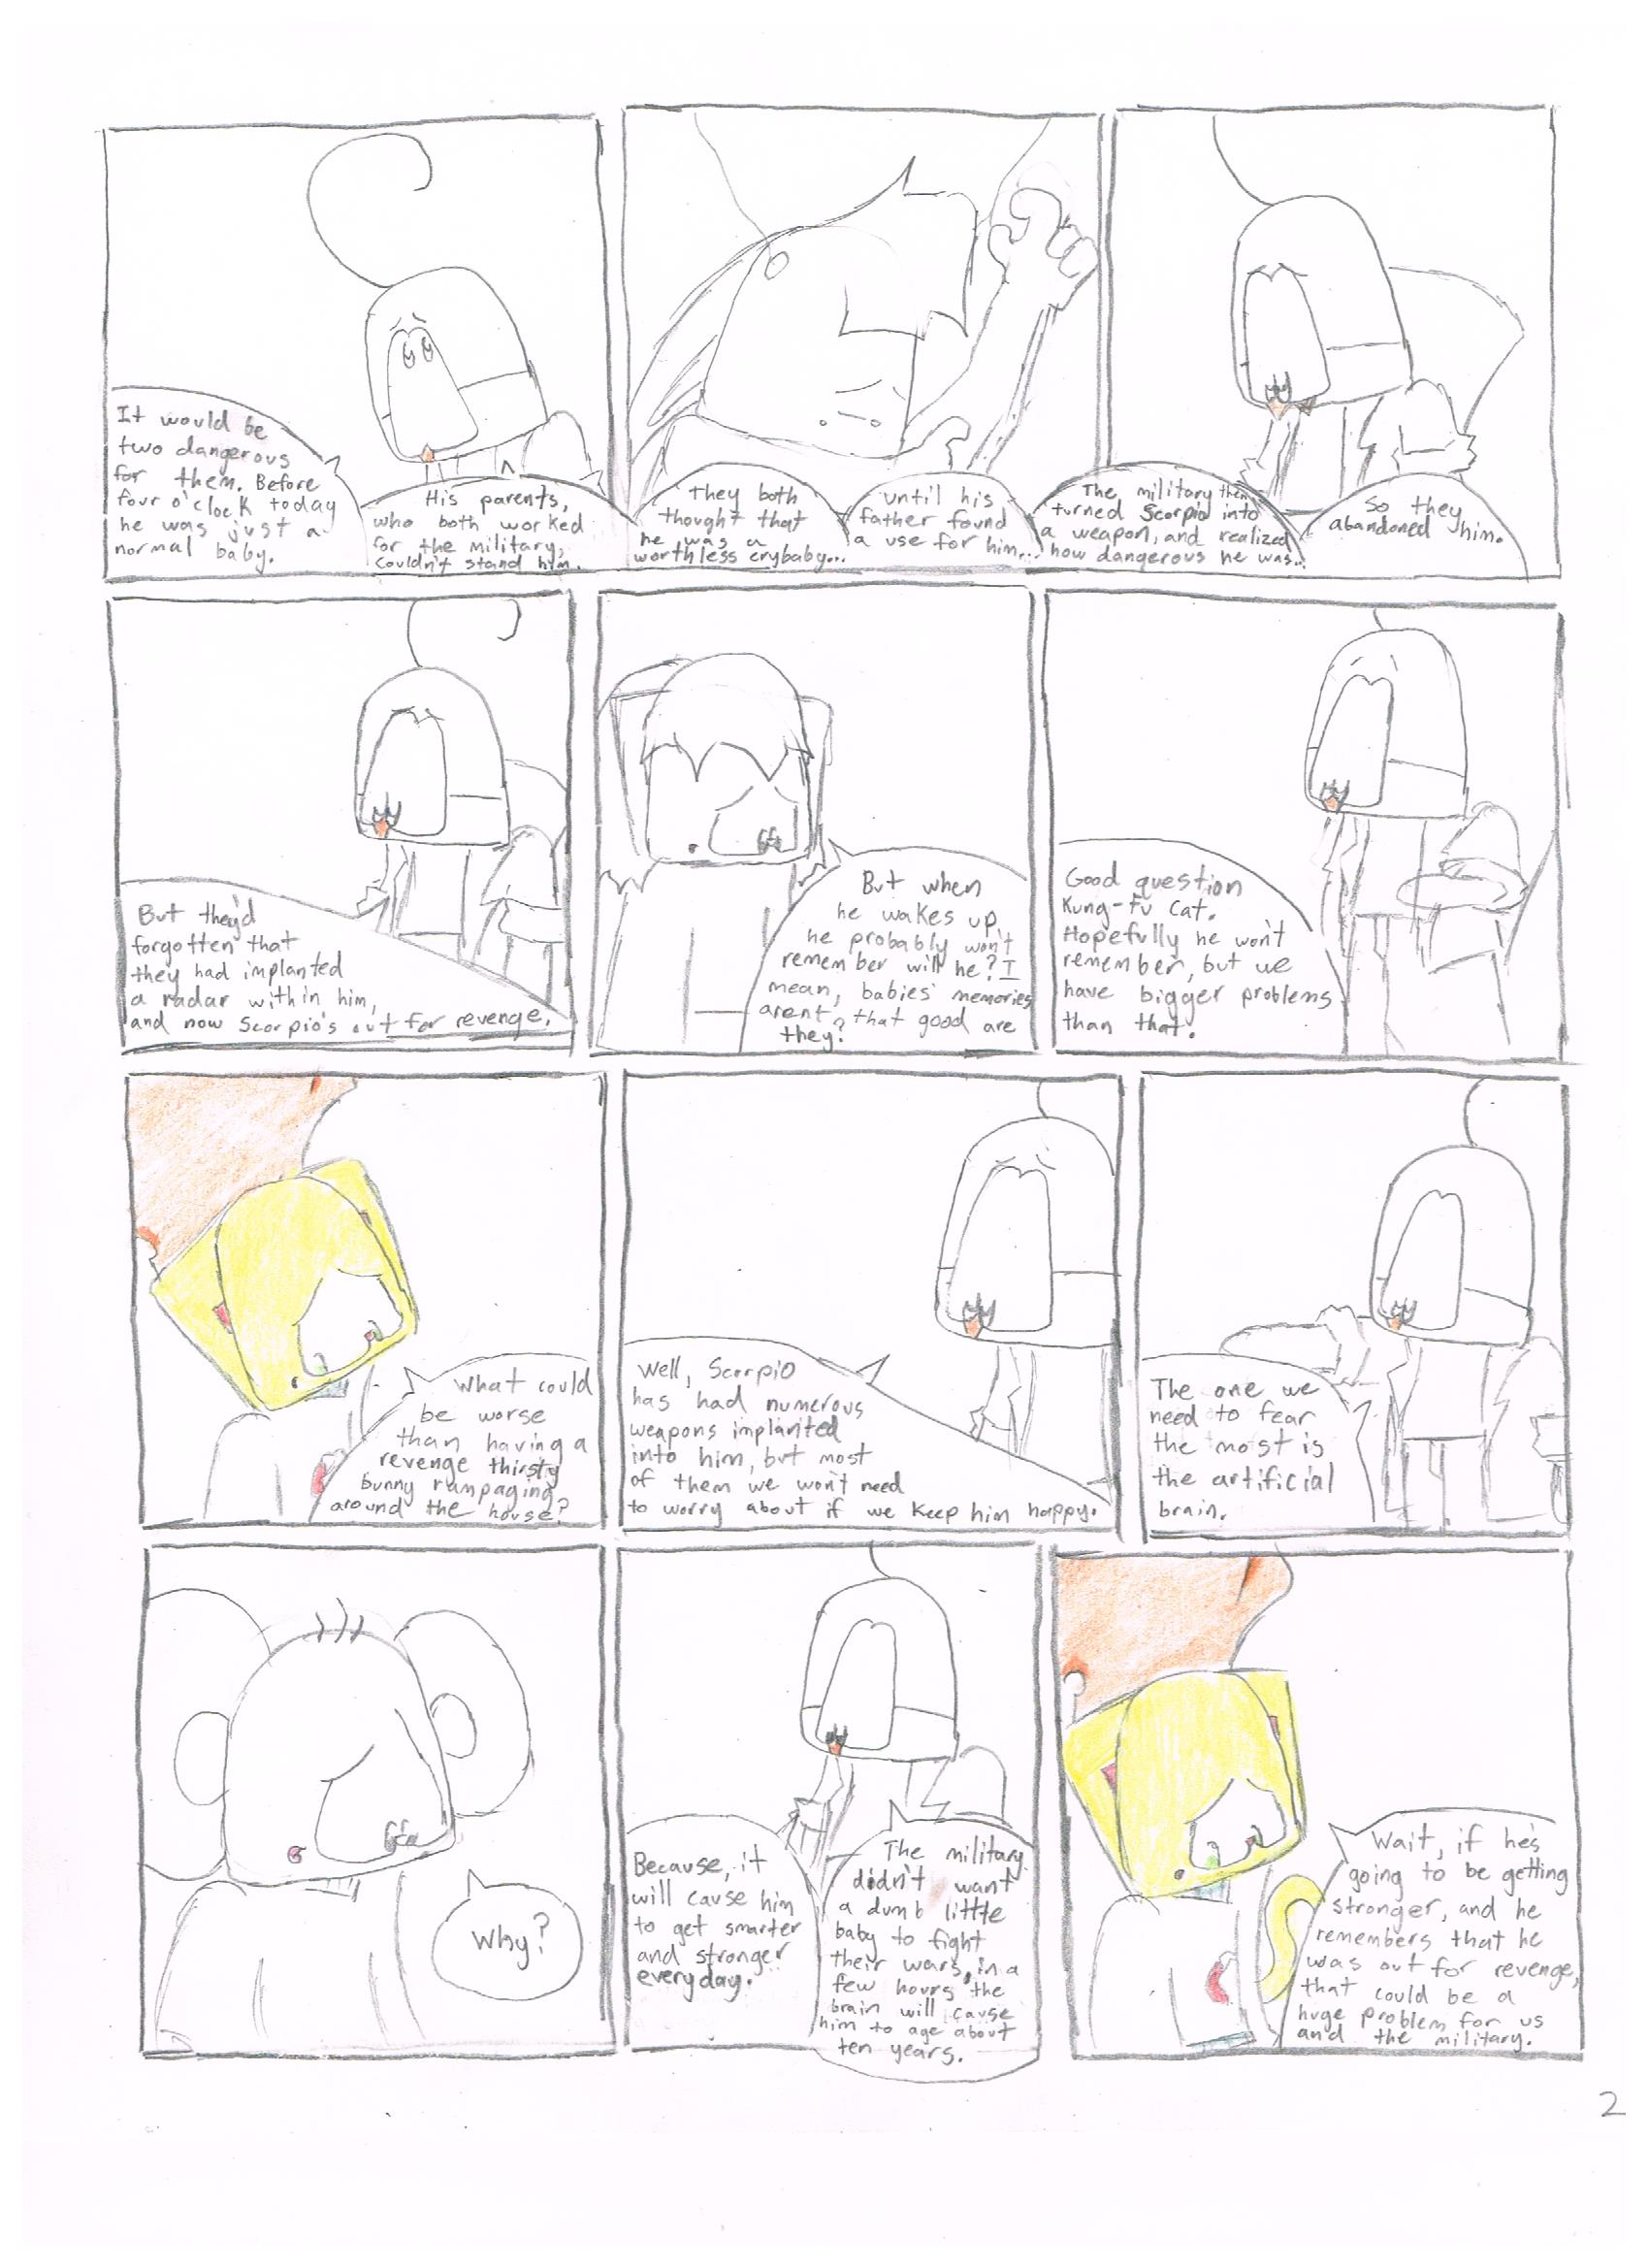 It would be
two dangerous
for them. Before
four o'clock today
he was just a
normal baby.
His parents,
who both worked
for the military,
couldn't stand him.
They both
thought that
he was a
worthless crybaby...
until his
father found
a use for him...
The military then
turned Scorpio into
a weapon, and realized
how dangerous he was..
So they
abandoned him.
But they'd
forgotten that
they had implanted
a radar within him,
and now Scorpio's out for revenge.
But when
he wakes up,
he probably won't
remember will he? I
mean, babies' memories
arent that good are
they?
Good question
Kung-fu Cat.
Hopefully he won't
remember, but we
have bigger problems
than that.
What could
be worse
than having a
revenge thirsty
bunny rampaging
around the house?
Well, Scorpio
has had numerous
weapons implanted
into him, but most
of them we won't need
to worry about if we keep him happy.
The one we
need to fear
the most is
the artificial
brain.
Why?
Because, it
will cause him
to get smarter
and stronger
everyday.
The military
didn't want
a dumb little
baby to fight
their wars, in a
few hours the
brain will cause
him to age about
ten years.
Wait, if he's
going to be getting
stronger, and he
remembers that he
was out for revenge,
that could be a
huge problem for us
and the military.
2